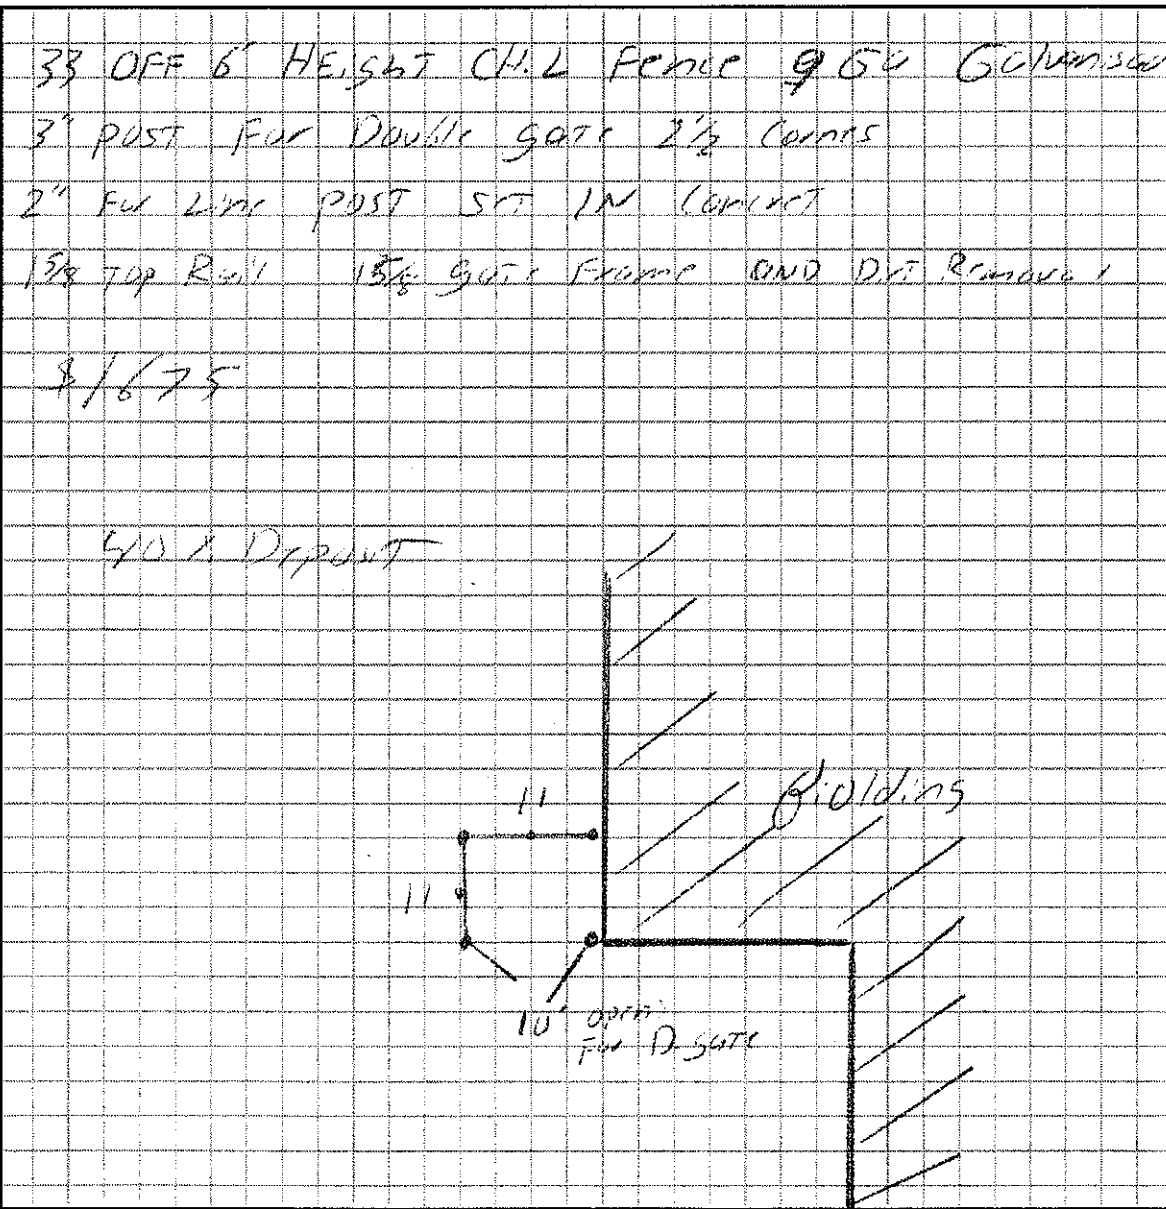 33 OFF 6' HEighT CH.L Fence 9 GU Galvanised
3" post For Double gate 2½ Cornes
2" For Line post SeT IN Concret
1⅝ Top Rail 1⅝ gate Frame AND Dirt Removal
$1675
Deposit
11
Biolding
11
10' open
For D.gate